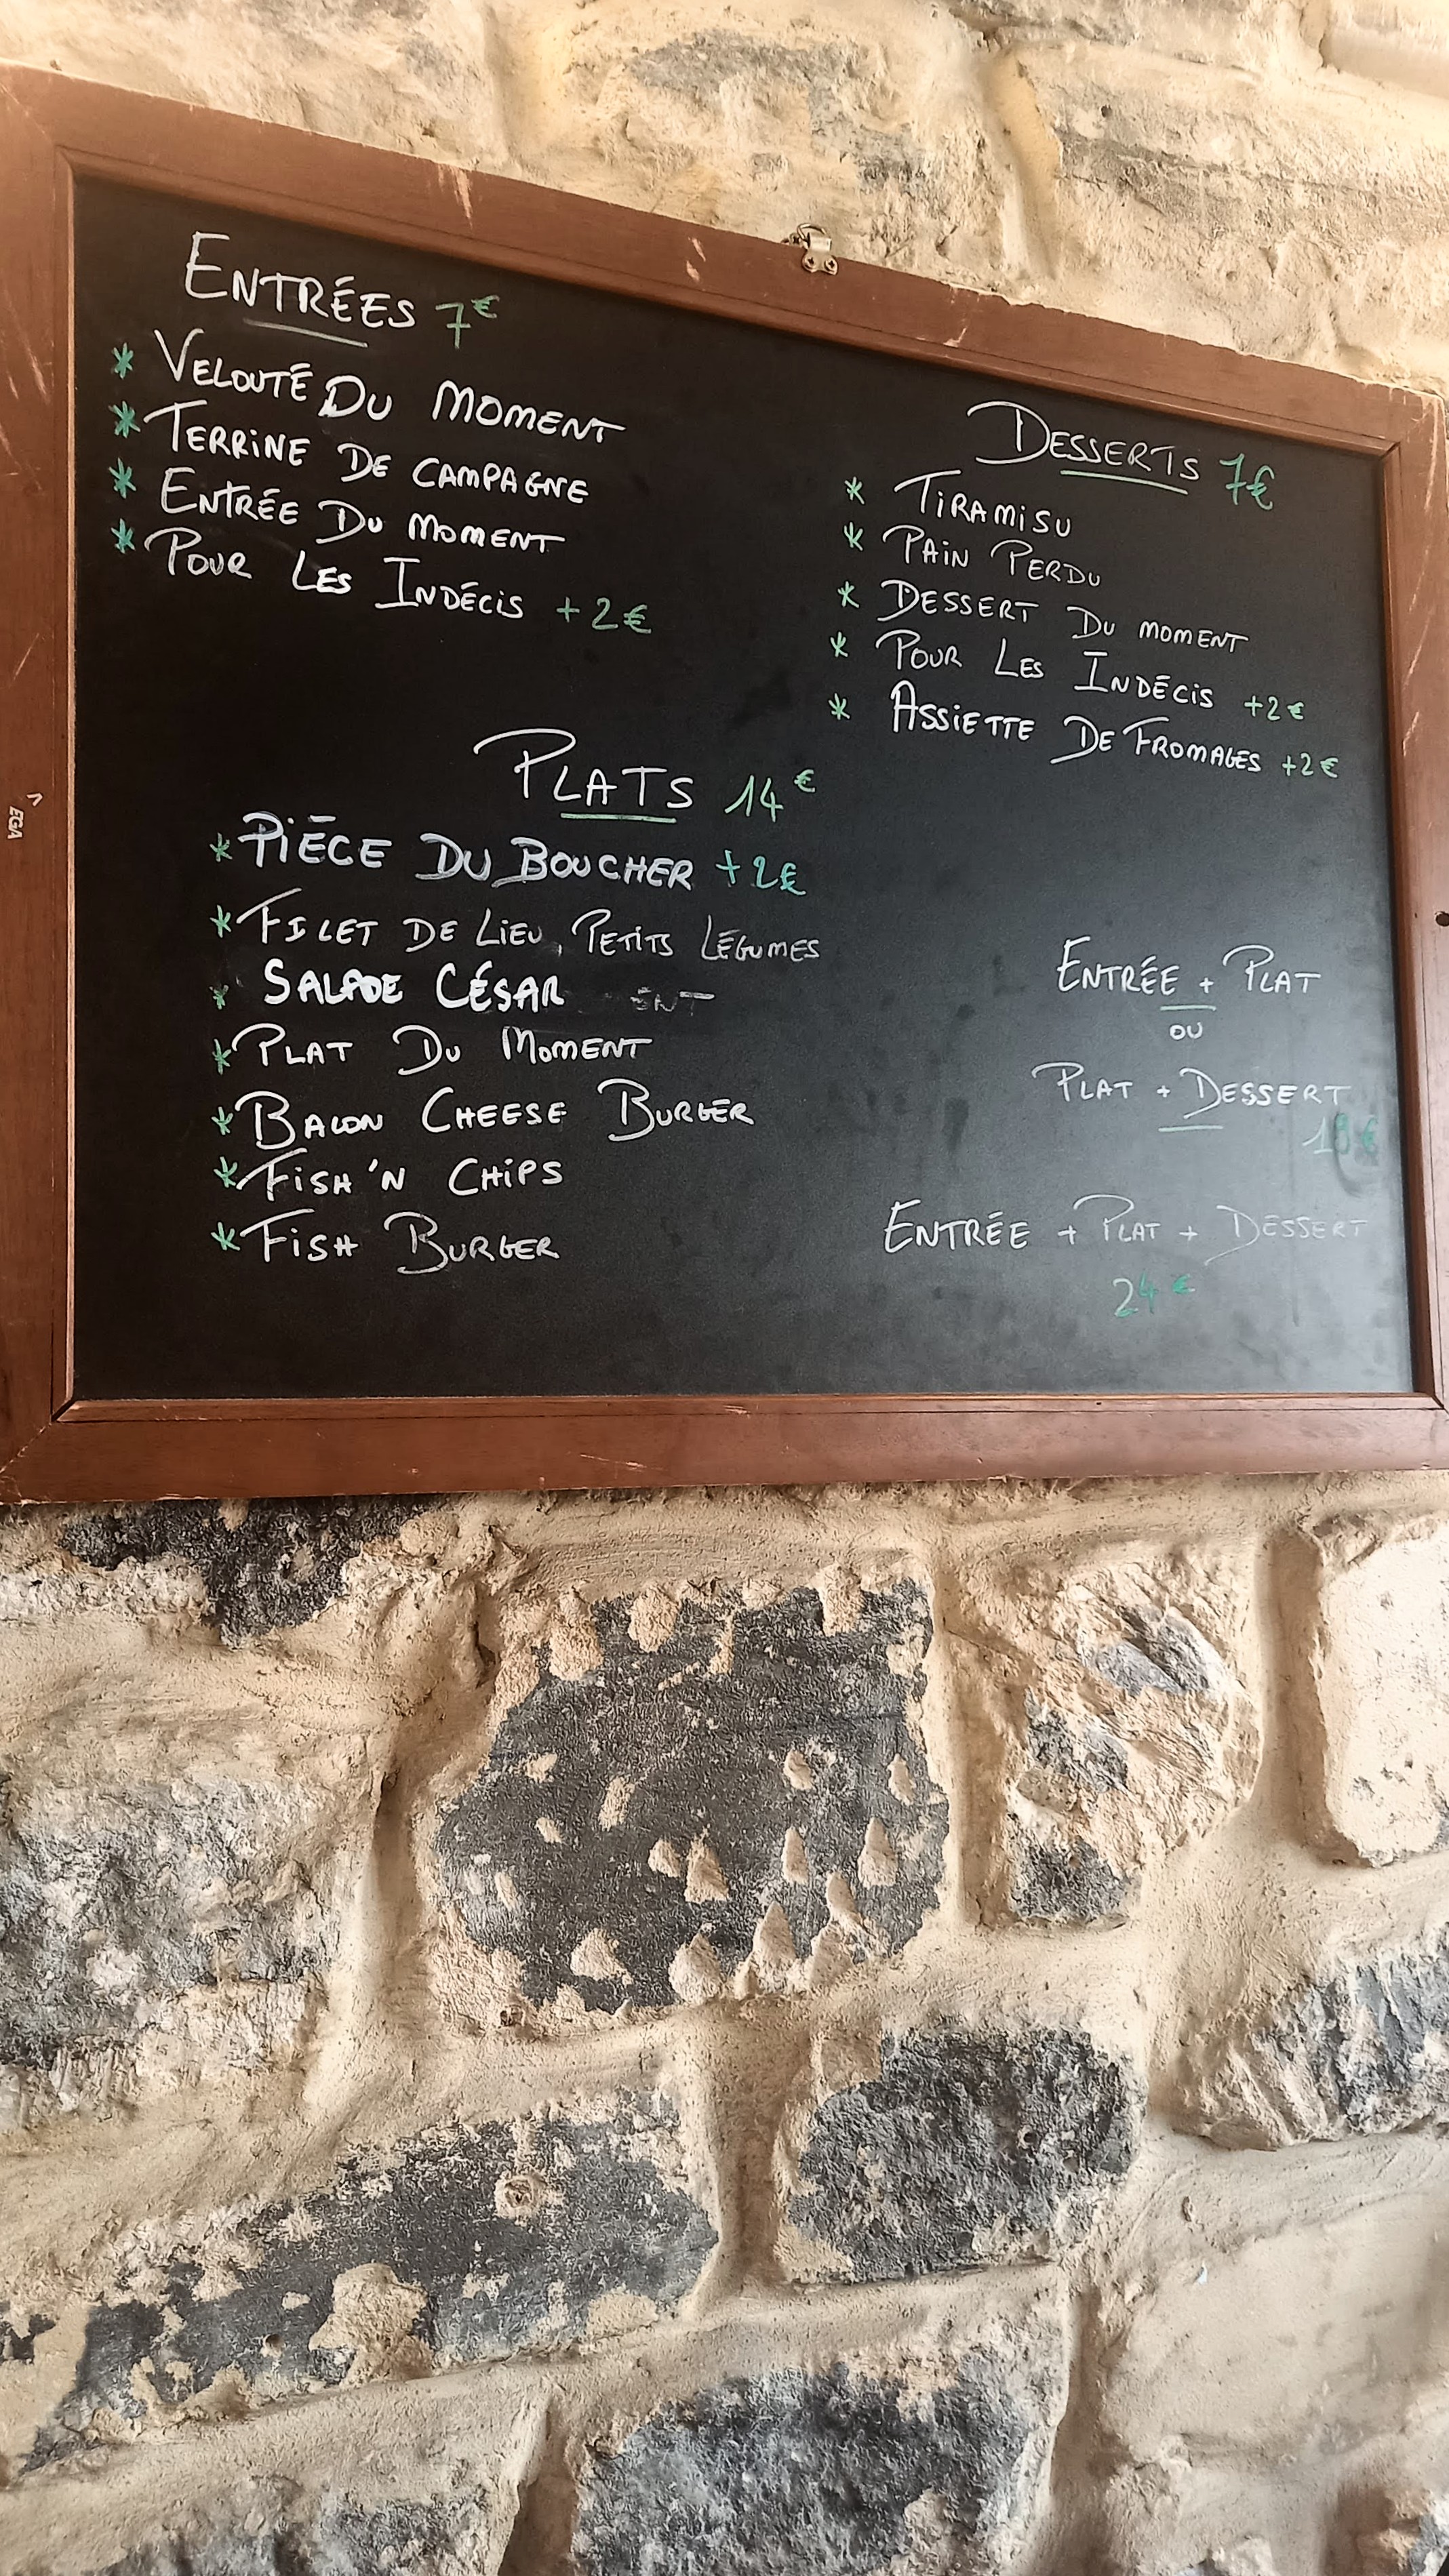 ENTRÉES 7€
* VELOUTÉ DU MOMENT
* TERRINE DE CAMPAGNE
* ENTRÉE DU MOMENT
* POUR LES INDÉCIS +2€
DESSERTS 7€
* TIRAMISU
* PAIN PERDU
* DESSERT DU MOMENT
* POUR LES INDÉCIS +2€
* ASSIETTE DE FROMAGES +2€
PLATS 14€
* PIÈCE DU BOUCHER +2€
* FILET DE LIEU, PETITS LÉGUMES
* SALADE CÉSAR
* PLAT DU MOMENT
* BACON CHEESE BURGER
* FISH 'N CHIPS
* FISH BURGER
ENTRÉE + PLAT
OU
PLAT + DESSERT
18€
ENTRÉE + PLAT + DESSERT
24€